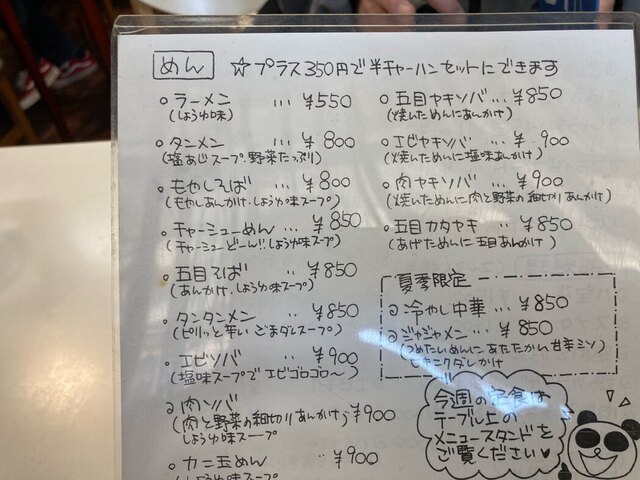 めん
☆プラス350円で半チャーハンセットにできます
○ラーメン ... ¥550
(しょうゆ味)
○タンメン ... ¥800
(塩あじスープ.野菜たっぷり)
○もやしそば ... ¥800
(もやしあんかけ.しょうゆ味スープ)
○チャーシューめん ... ¥850
(チャーシューどーん!!しょうゆ味スープ)
○五目そば ... ¥850
(あんかけ.しょうゆ味スープ)
○タンタンメン ... ¥850
(ピリッと辛いごまダレスープ)
○エビソバ ... ¥900
(塩味スープでエビゴロゴロ〜)
○肉ソバ
(肉と野菜の細切りあんかけ)... ¥900
しょうゆ味スープ
○カニ玉めん ... ¥900
しょうゆ味スープ
○五目ヤキソバ... ¥850
(焼いためんにあんかけ)
○エビヤキソバ... ¥900
(焼いためんに塩味あんかけ)
○肉ヤキソバ ... ¥900
(焼いためんに肉と野菜の細切りあんかけ)
○五目カタヤキ ... ¥850
(あげためんに五目あんかけ)
夏季限定
○冷やし中華 ... ¥850
○ジャジャメン ... ¥850
(つめたいめんにあたたかい甘辛ミソ)
ヒキニクダレかけ
今週の定食は
テーブル上の
メニュースタンドを
ご覧ください♥